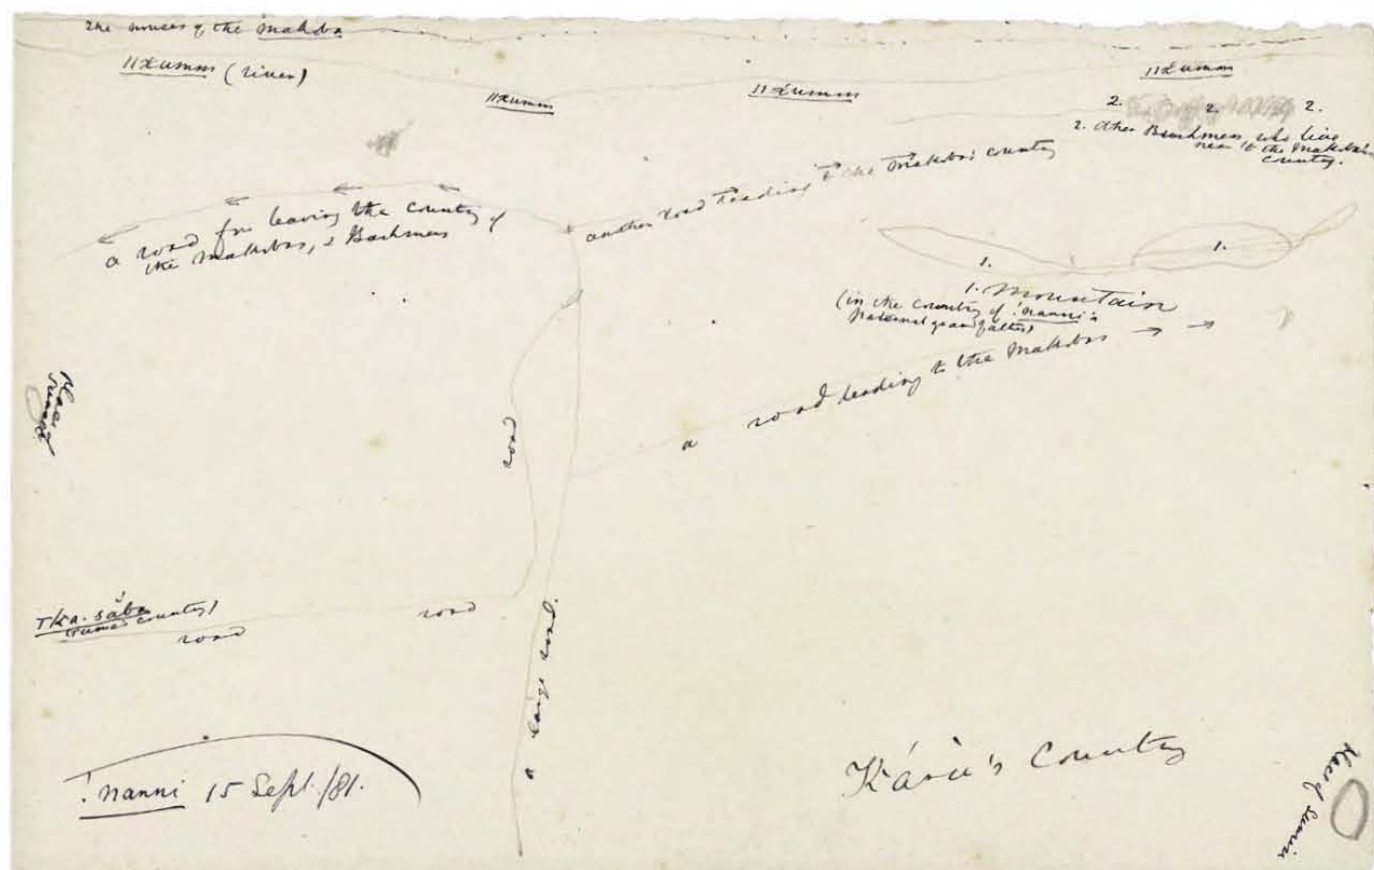 The houses of the Makoba
ǁxumm (river)
ǁxumm
ǁxumm
ǁxumm
2. 2. 2.
2. Other Bushmen who live
near to the Makoba's
country.
another road leading to the Makoba's country
a road for leaving the country of
the Makobas, & Bushmen
1. 1.
1. Mountain
(in the country of !nanni's
paternal grandfather)
a road leading to the Makobas
Place
Sunset
road
Tka. sába
(Tamme's country)
road
road
a large road
!nanni 15 Sept./81.
Káru's Country
Place of Sunrise